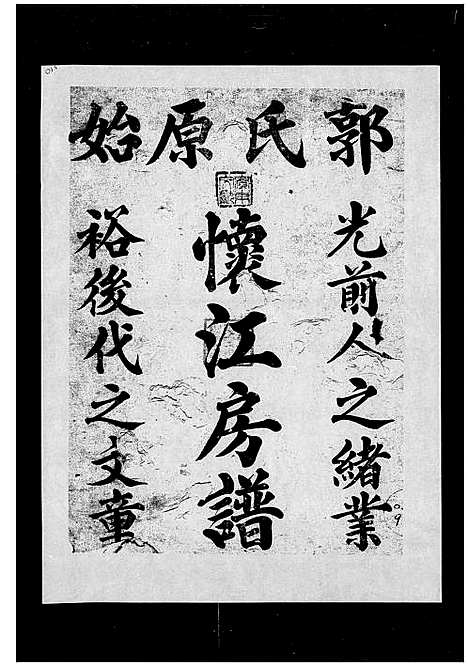 郭氏原始
光前人之緒業
懷江房譜
裕後代之文章